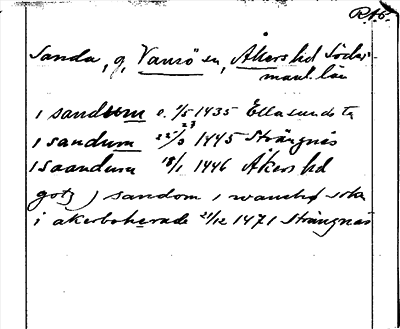 RAp.
Sanda, g, Vansö sn, Åkers hd Söder-
manl. län
i sandum o. 1/5 1435 Ella sunde ta
i sandum 22/3 27 1445 Strängnäs
i saandum 18/1 1446 Åkers hd
gotz j sandom i wanshø sokn
i akerboherade 21/12 1471 Strängnäs